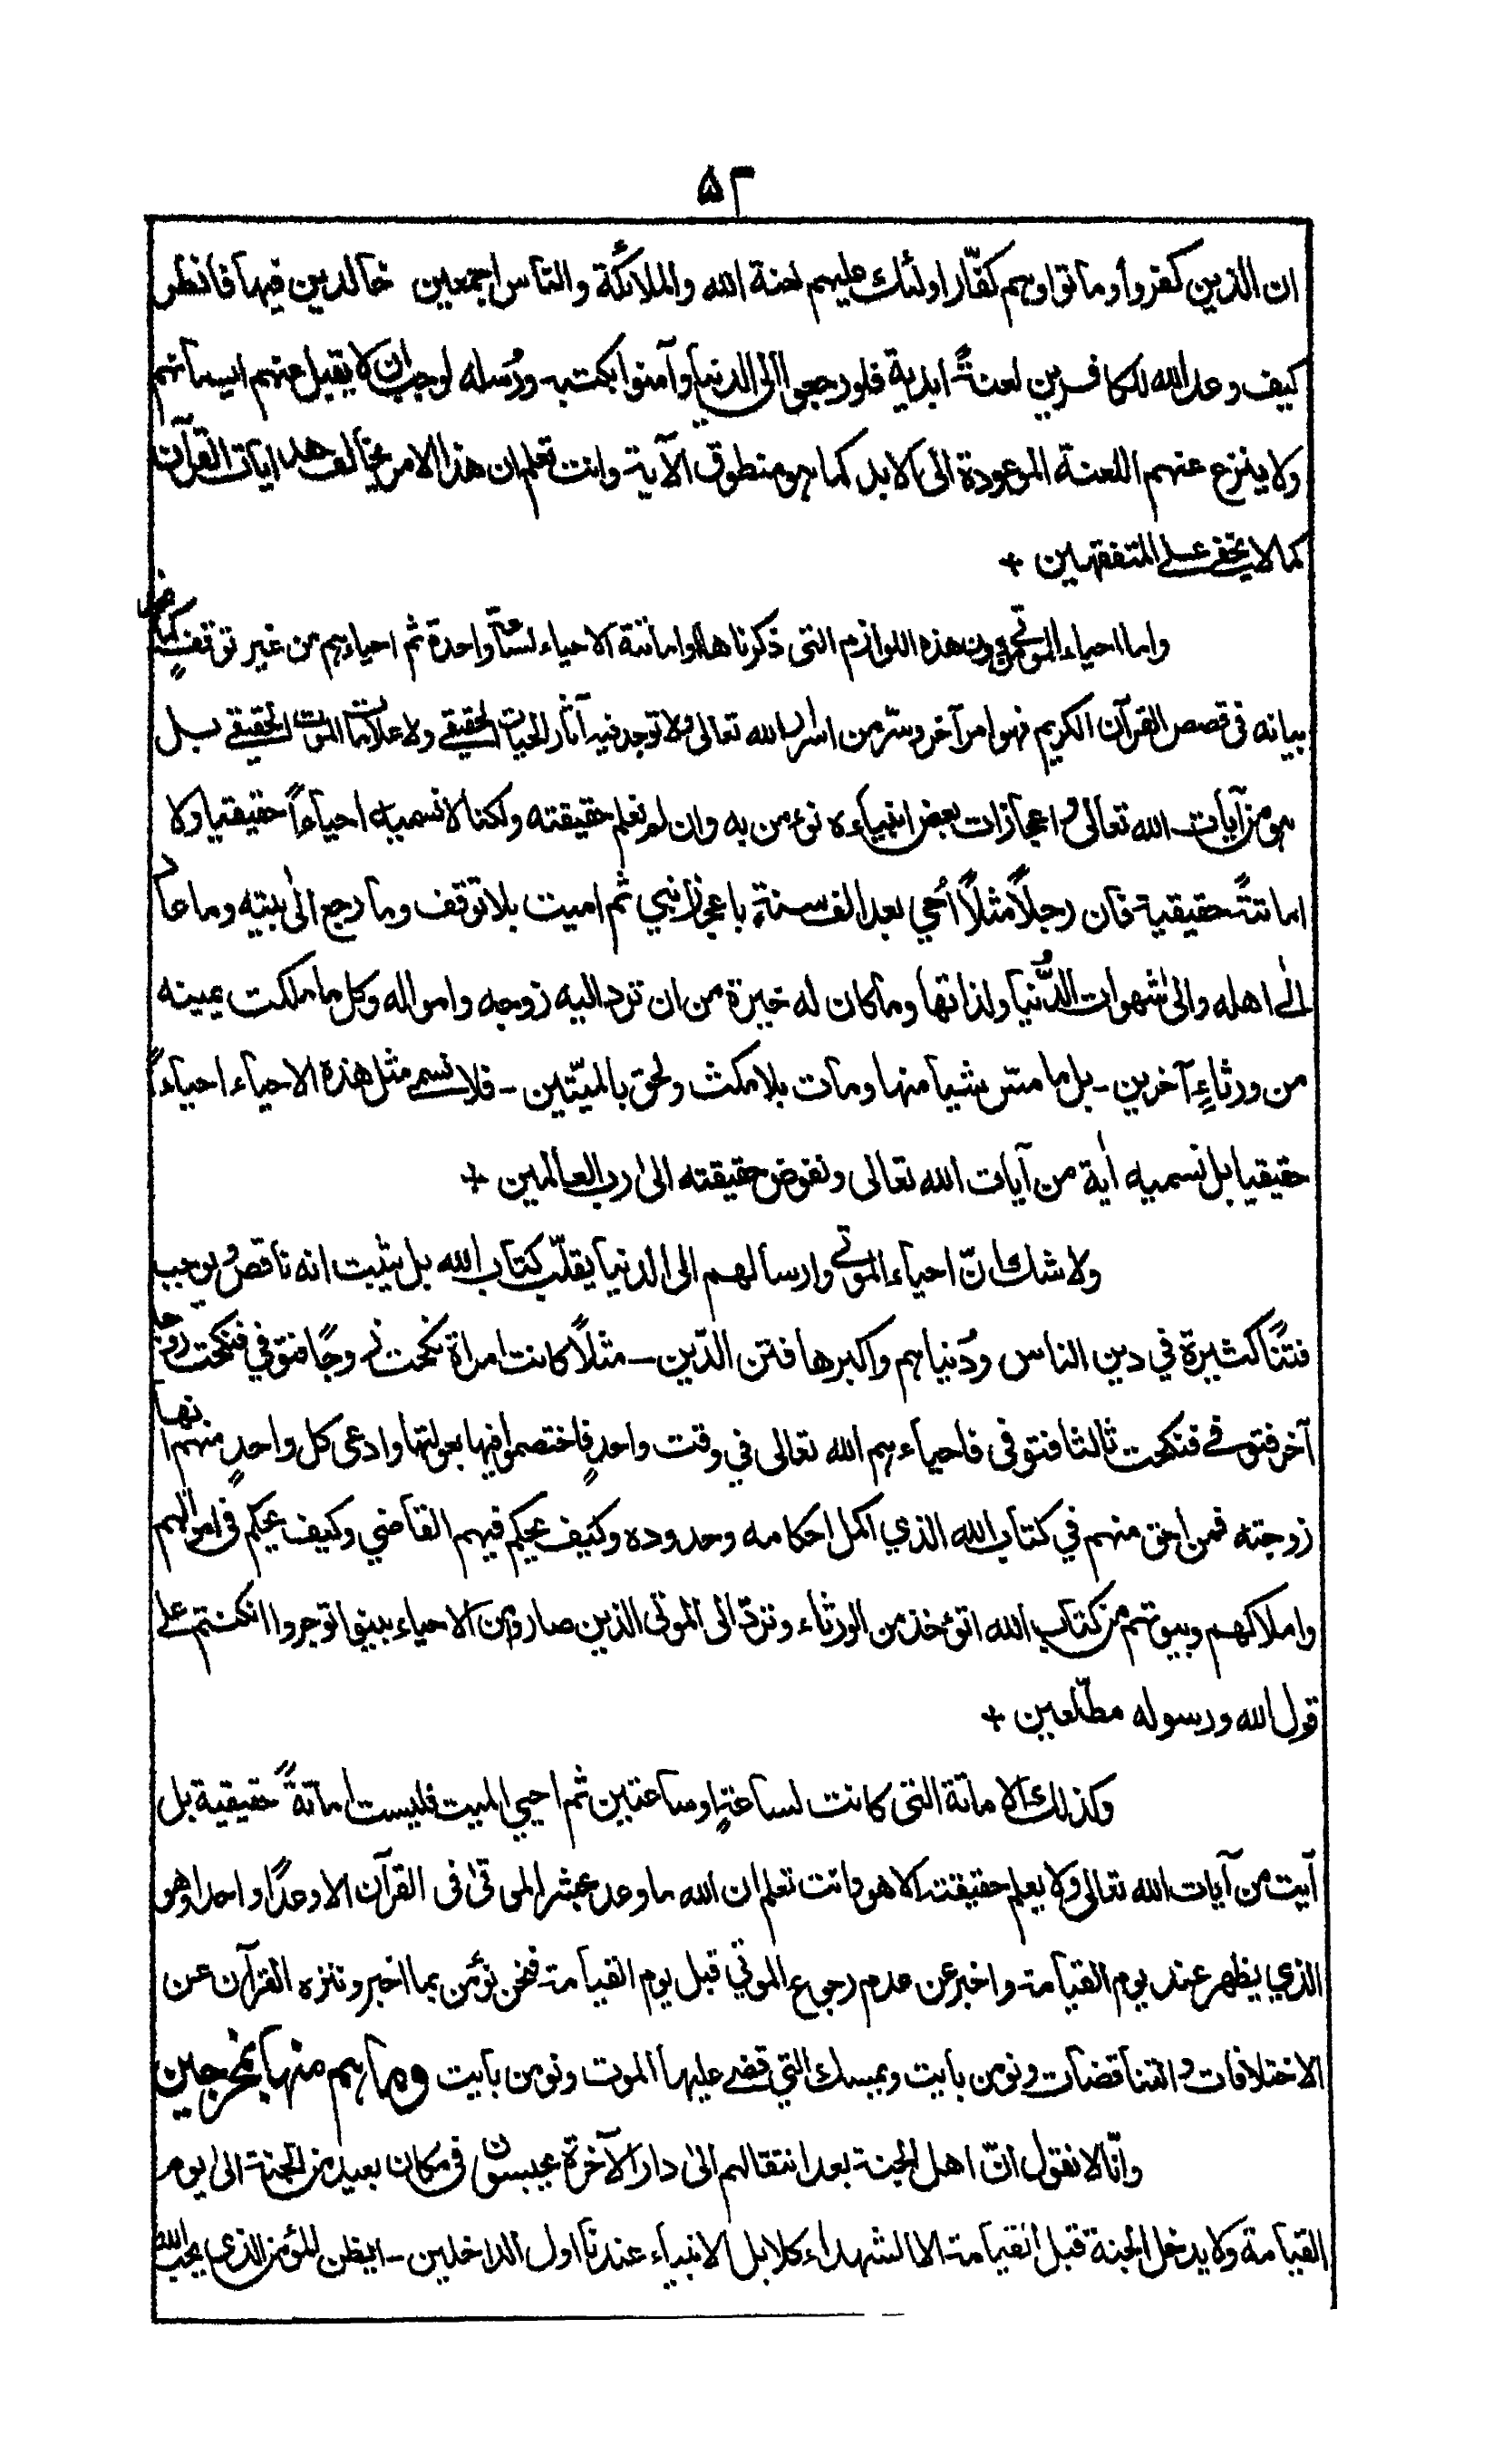 ۵۲
ان الذین کفروا وماتوا وہم کفّار اولئك علیہم لعنة الله والملائکة والناس اجمعین خالدین فیہا فانظر
کیف وعد الله للکافرین لعنةً ابدیة فلو رجعوا الی الدنیا وآمنوا بکتبہ ورُسله لوجب ان لا یقبل عنہم ایمانہم
ولا ینزع عنہم اللعنة الموعودة الی الابد کما ہو منطوق الآیة وانت تعلم ان هذا الامر یخالف هدایات القرآن
کما لا یخفے علے المتفقہین +
واما احیاء الموتٰے من دون هذه اللوازم التی ذکرناها او اماتة الاحیاء لساعة واحدة ثم احیاءہم من غیر توقفٍ کما نجد
بیانه فی قصص القرآن الکریم فہو امر آخر وسّر من اسرار الله تعالیٰ ولا توجد فیہ آثار الحیات الحقیقے ولا علامات الموت الحقیقے بل
ہو من آیات الله تعالیٰ واعجازات بعض انبیاءہ نوءمن به وان لم نعلم حقیقته ولکنا لا نسمیه احیاءاً حقیقتیا ولا
اماتتةً حقیقیة فان رجلًا مثلًا اُحي بعد الف سنةٍ باعجاز نبي ثم امیت بلا توقف وما رجع الیٰ بیته وما عاد
الے اهله والیٰ شهوات الدُّنیا ولذاتها وما کان له خیرة من ان ترد الیه زوجه وامواله وکل ما ملکت یمینه
من ورثاءٍ آخرین - بل ما مسّ شیاً منها ومات بلا مکث ولحق بالمیّتین - فلا نسمے مثل هذه الاحیاء احیاءاً
حقیقیا بل نسمیه اٰیة من آیات الله تعالی ونفوض حقیقته الیٰ رب العالمین +
ولا شك انّ احیاء الموتٰے وارسالهم الی الدنیا یقلّب کتاب الله بل یثبت انه ناقص ویوجب
فتنًا کثیرة في دین الناس ودُنیاہم واکبرها فتن الدّین - مثلًا کانت امراة نکحت زوجًا فتوفي فنکحت زوجا
آخر فتوفے فنکحت ثالثا فتوفی فاحیاءہم الله تعالی في وقت واحدٍ فاختصموا فیها بعولتها وادعی کل واحدٍ منہم انها
زوجته فمن احق منہم في کتاب الله الذي اکمل احکامه وحدوده وکیف یحکم فیہم القاضي وکیف یحکم فی اموالہم
واملاکہم وبیوتہم من کتاب الله اتوٴخذ من الورثاء وتردّ الی الموتٰی الذین صاروا من الاحیاء بینوا توجروا ان کنتم علے
قول الله ورسوله مطّلعین +
وکذلك الاماتة التی کانت لساعةٍ او ساعتین ثم احیي المیت فلیست اماتةً حقیقیة بل
آیت من آیات الله تعالیٰ ولا یعلم حقیقتہ الا هو وانت تعلم ان الله ما وعد بحشر الموتٰی فی القرآن الا وعدًا واحدا وهو
الذي یظهر عند یوم القیامة واخبر عن عدم رجوع الموتٰي قبل یوم القیامة فنحن نوٴمن بما اخبر وننزه القرآن عن
الاختلافات والتناقضات ونومن بآیت ویمسك التي قضے علیہا الموت ونومن بآیت وما ہم منہا بمخرجین
وانّا لا نقول انّ اهل الجنة بعد انتقالہم الیٰ دار الآخرة یحبسون فی مکان بعید من الجنة الیٰ یوم
القیامة ولا یدخل الجنة قبل القیامة الا الشہداء کلا بل الانبیاء عندنا اول الداخلین - ایظن الموٴمن الذی یحب الله